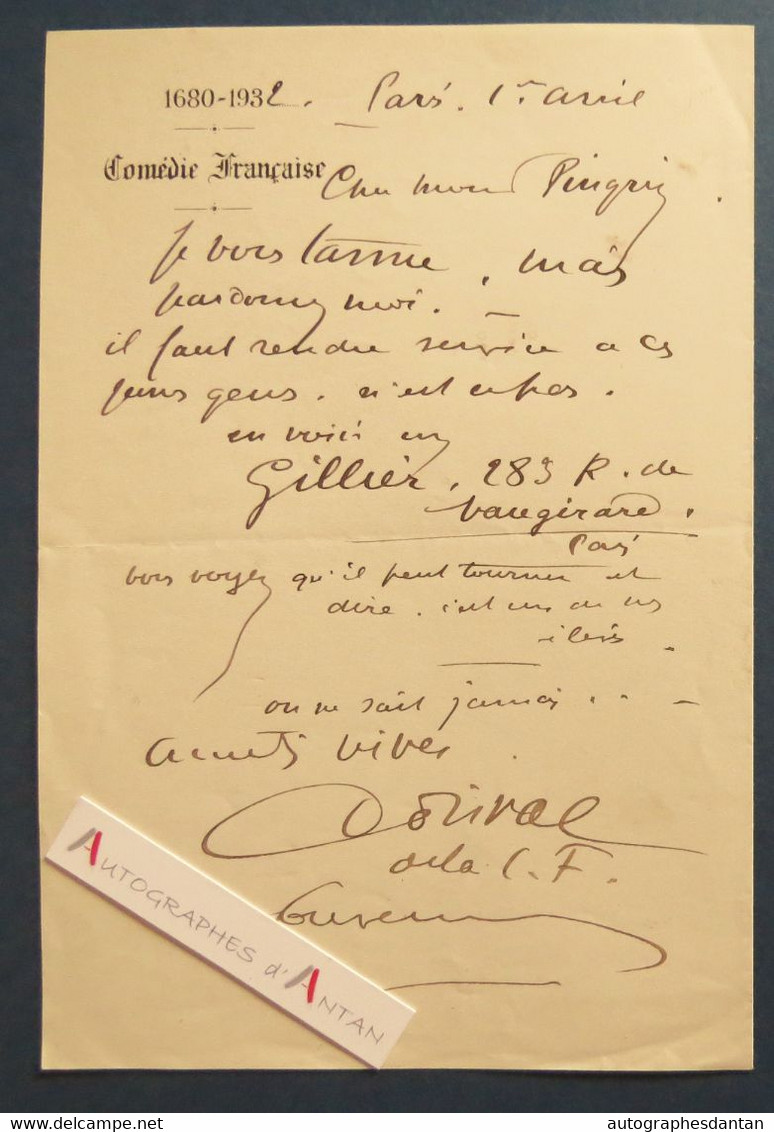 1680-1932. Paris. 1er avril
Comédie Française
Cher Monsieur Pingrin.
je vous tanne, mais
pardonnez moi. _
il faut rendre service a ces
jeunes gens. n'est ce pas.
en voici un
Gillier, 283 R. de
Vaugirard.
Paris
vous voyez qu'il peut tourner et
dire. c'est un de nos
élèves.
on ne sait jamais...
amitiés vives
Dorival
de la C. F.
AUTOGRAPHES d'ANTAN
autographesdantan